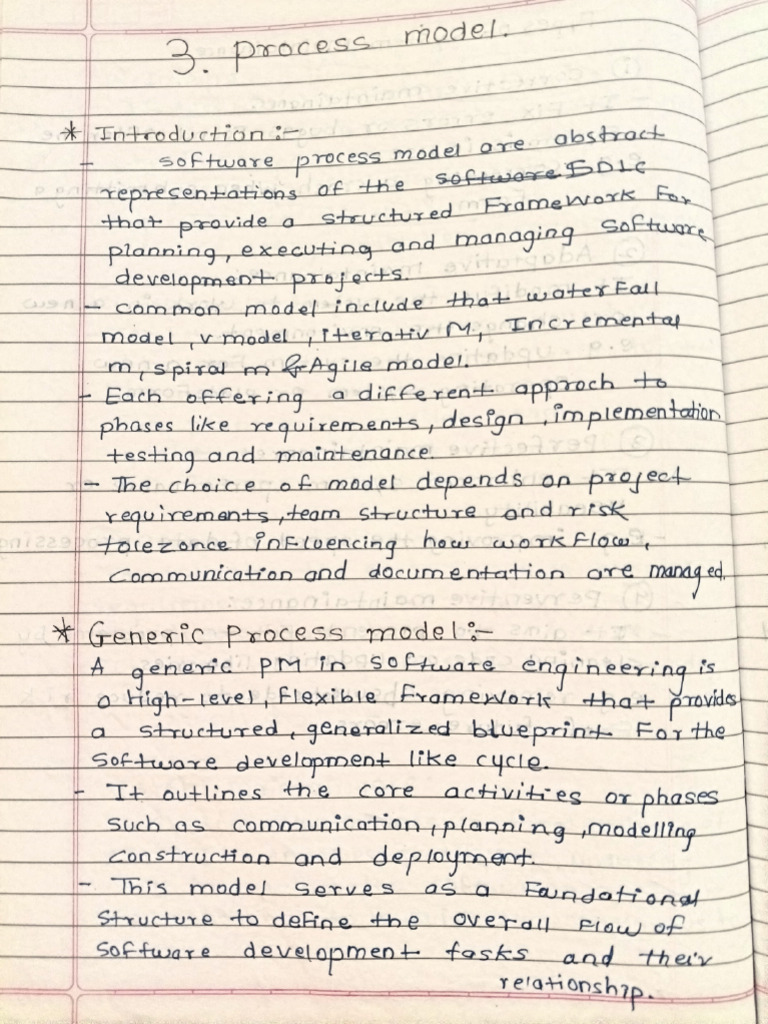 3. process model.
* Introduction :-
- software process model are abstract
representations of the software SDLC
that provide a structured Framework For
planning, executing and managing software
development projects.
- common model include that waterfall
model, v model, iterativ M, Incremental
m, spiral m & Agile model.
- Each offering a different approch to
phases like requirements, design, implementation
testing and maintenance
- The choice of model depends on project
requirements, team structure and risk
tolezance influencing how work flow,
communication and documentation are managed.
* Generic Process model :-
A generic PM in software engineering is
a High-level, Flexible Framework that provides
a structured, generalized blueprint For the
software development like cycle.
- It outlines the core activities or phases
such as communication, planning, modelling
construction and deployment.
- This model serves as a Foundational
structure to define the overall flow of
software development tasks and their
relationship.